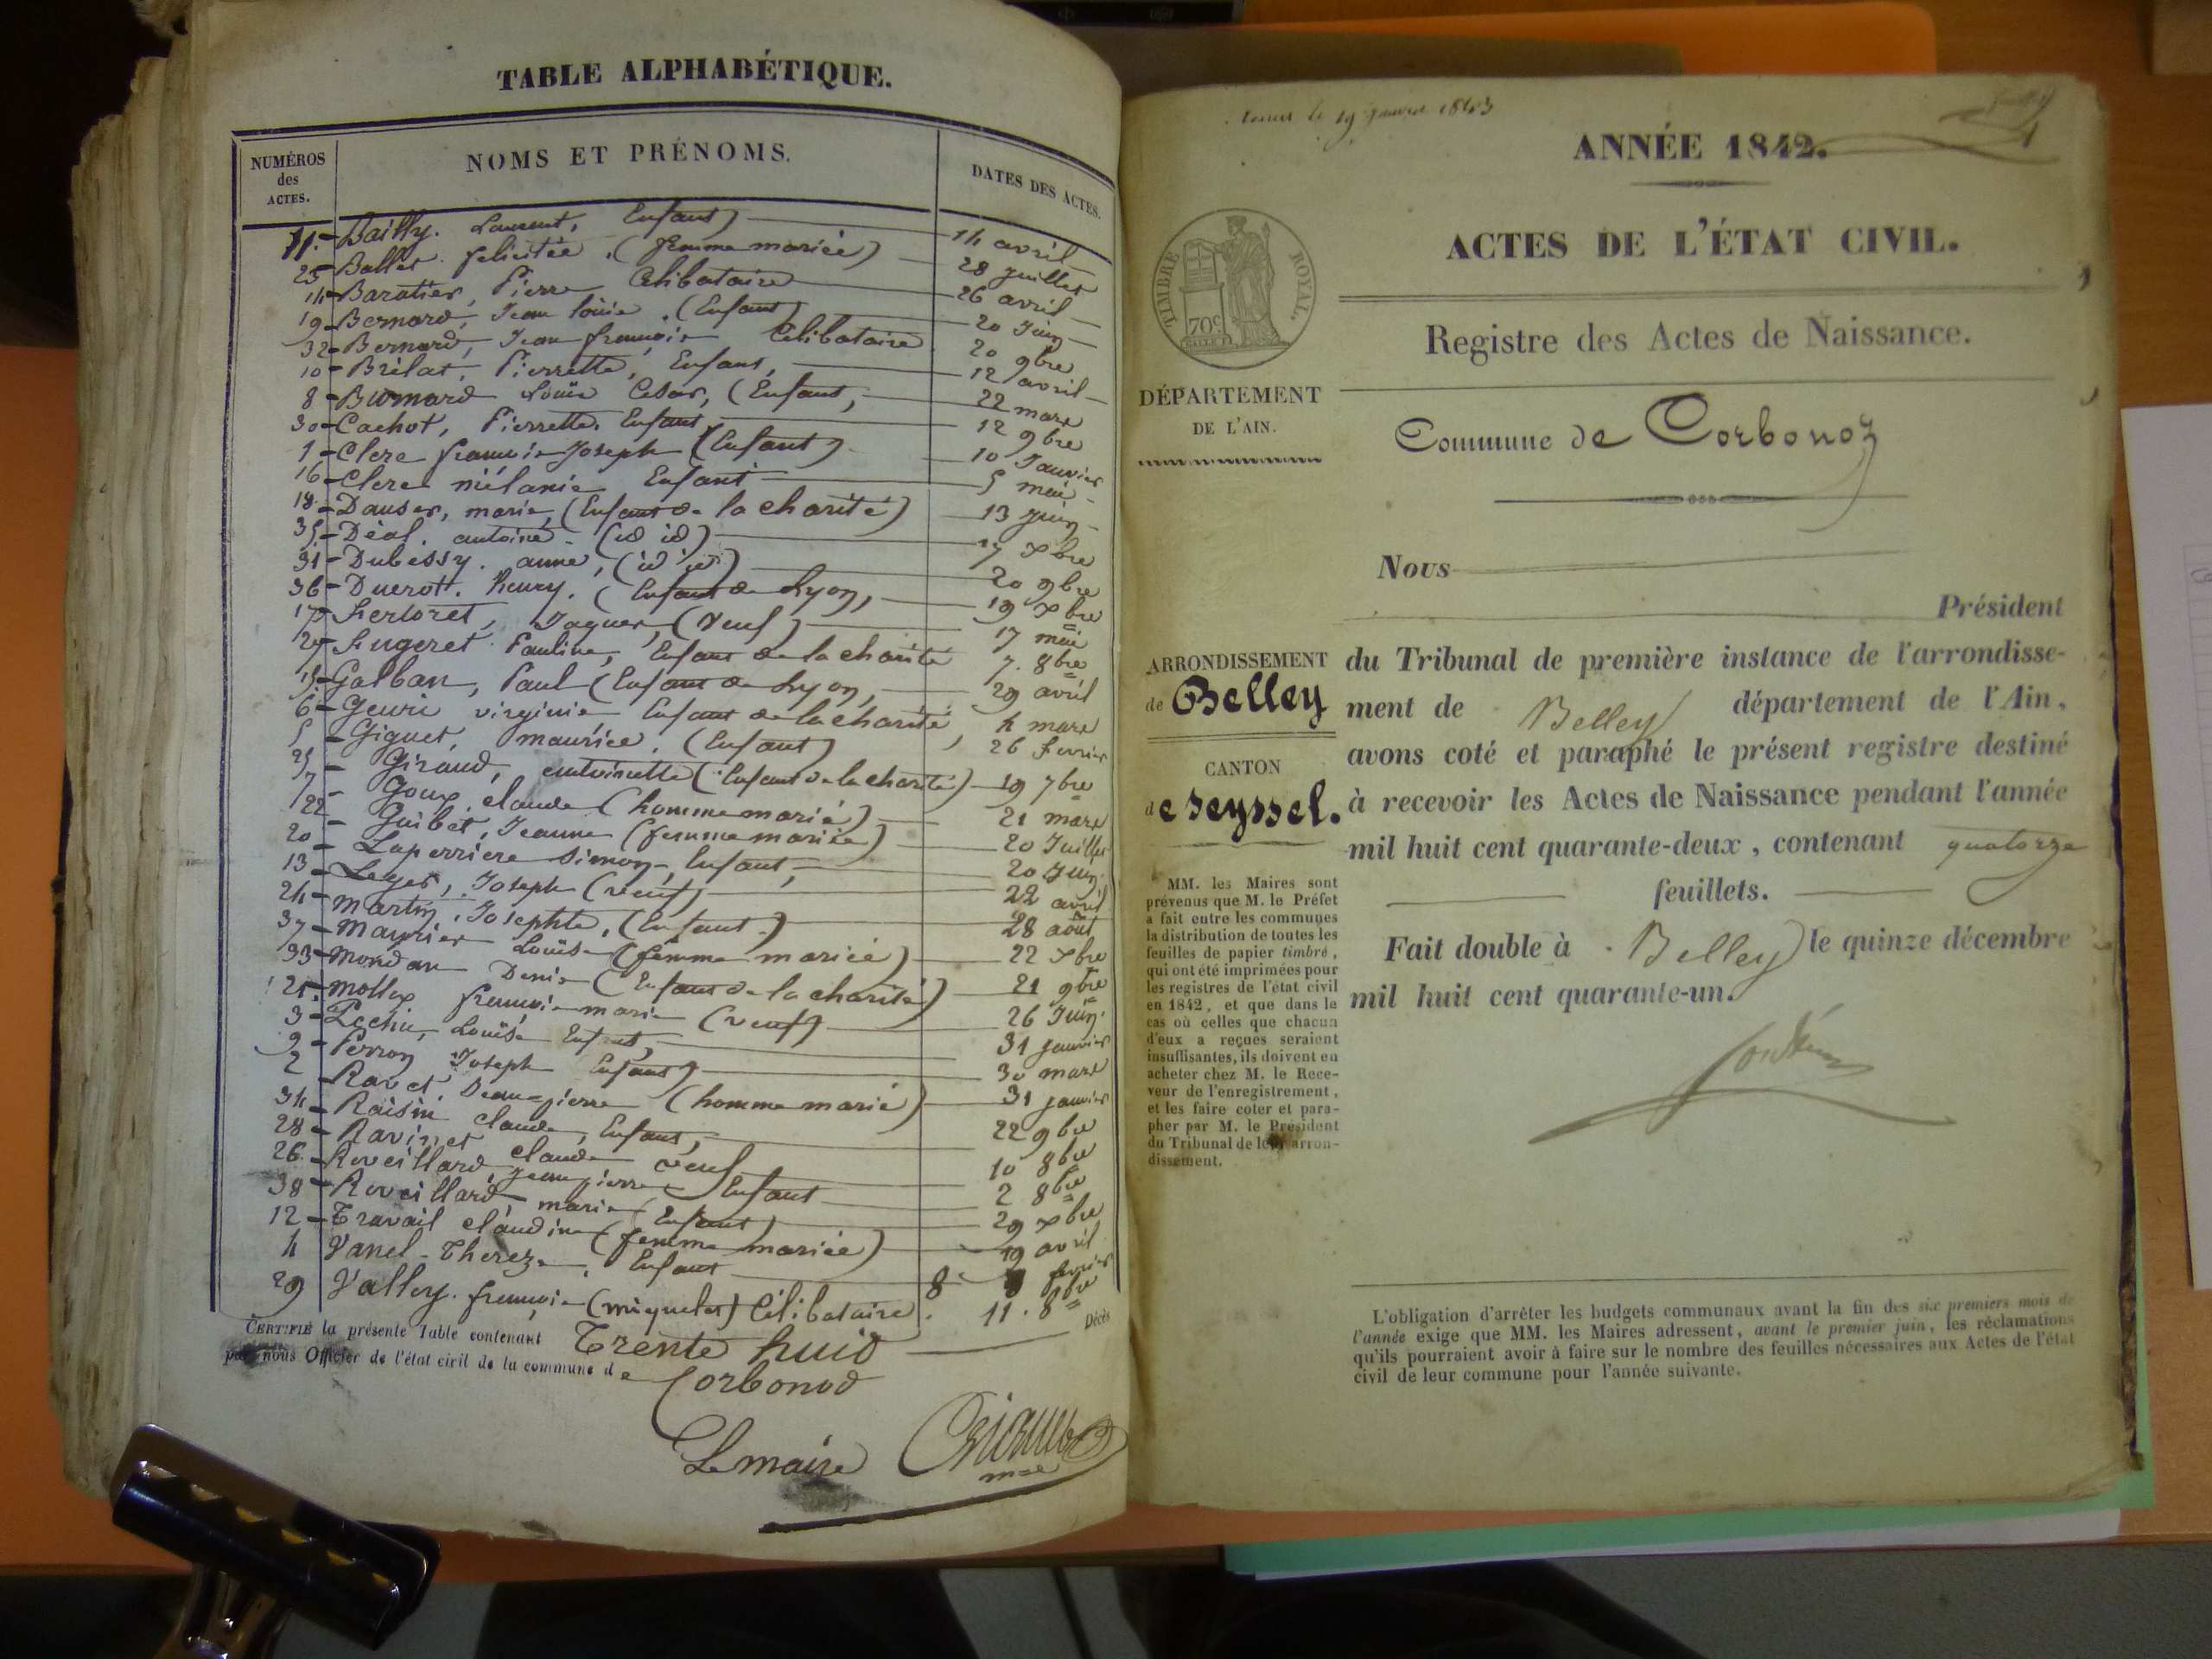 TABLE ALPHABÉTIQUE.
NUMÉROS des ACTES.
NOMS ET PRÉNOMS.
DATES DES ACTES.
11 - Bailly. Laurent, Enfant) 14 avril
23 - Ballet. felicitée, (femme mariée) 28 juillet
14 - Baratier, Pierre Celibataire 26 avril
19 - Bernard, Jean louis, (Enfant) 20 Juin
32 - Bernard, Jean françois Celibataire 20 9bre
10 - Brélat, Pierrette, Enfant, 12 avril
8 - Burnard Louis Cesar, (Enfant, 22 mars
30 - Cachot, Pierrette, Enfant 12 9bre
1 - Clerc françois Joseph (Enfant) 10 Janvier
16 - Clerc mélanie Enfant 5 mai
18 - Dauser, marie, (Enfant de la charité) 13 Juin
35 - Déal. antoine - (id id) 17 Xbre
31 - Dubessy. anne, (id id) 20 9bre
36 - Duerott. henry. (Enfant de Lyon, 19 Xbre
17 - fertoret, Jaques, (Veuf) 17 mai
27 - fugeret Pauline, Enfant de la charité 7. 8bre
15 - Galban, Paul (Enfant de Lyon, 29 avril
6 - Geuri virginie Enfant de la charité, 4 mars
5 - Giguet, maurice. (Enfant) 26 fevrier
25 - Giraud, antoinette (Enfant de la charité) 19 7bre
7 - Goux, claude (homme marié) 21 mars
22 - Guibet, Jeanne (femme mariée) 20 Juillet
20 - Laperriere Simon, Enfant, 20 Juin.
13 - Leger, Joseph (veuf) 22 avril
24 - Martin, Josephte, (Enfant.) 28 août
37 - Maurier Louise (femme mariée) 22 Xbre
33 - Mondan Denis (Enfant de la charité) 21 9bre
21 - Mollex françois marie (veuf) 26 Juin.
3 - Pochie, Louise Enfant, 31 janvier
9 - Perron Joseph Enfant) 30 mars
2 Ravet Jean-pierre (homme marié) 31 janvier
34 - Raisin Claude, Enfant, 22 9bre
28 - Ravinet Claude veuf 10 8bre
26 - Roveillard, Jean pierre Enfant 2 8bre
38 - Roveillard marie (Enfant) 29 Xbre
12 - Travail claudine (femme mariée) 19 avril
4 Vanel - Thereze, Enfant 8 fevrier
29 Valloy. françois (miquelet) Célibataire. 11. 8bre
Décès
CERTIFIÉ la présente Table contenant Trente huit
par nous Officier de l'état civil de la commune de Corbonod
Le maire
Tenus le 19 janvier 1843
ANNÉE 1842.
ACTES DE L'ÉTAT CIVIL.
TIMBRE ROYAL.
70c
Registre des Actes de Naissance.
DÉPARTEMENT
DE L'AIN.
Commune de Corbonoz
Nous
Président
ARRONDISSEMENT
de Belley
CANTON
de seyssel.
du Tribunal de première instance de l'arrondisse-
ment de Belley département de l'Ain,
avons coté et paraphé le présent registre destiné
à recevoir les Actes de Naissance pendant l'année
mil huit cent quarante-deux, contenant quatorze
feuillets.
Fait double à Belley le quinze décembre
mil huit cent quarante-un.
MM. les Maires sont
prévenus que M. le Préfet
a fait entre les communes
la distribution de toutes les
feuilles de papier timbré,
qui ont été imprimées pour
les registres de l'état civil
en 1842, et que dans le
cas où celles que chacun
d'eux a reçues seraient
insuffisantes, ils doivent en
acheter chez M. le Rece-
veur de l'enregistrement,
et les faire coter et para-
pher par M. le Président
du Tribunal de leur arron-
dissement.
L'obligation d'arrêter les budgets communaux avant la fin des six premiers mois de
l'année exige que MM. les Maires adressent, avant le premier juin, les réclamations
qu'ils pourraient avoir à faire sur le nombre des feuilles nécessaires aux Actes de l'état
civil de leur commune pour l'année suivante.